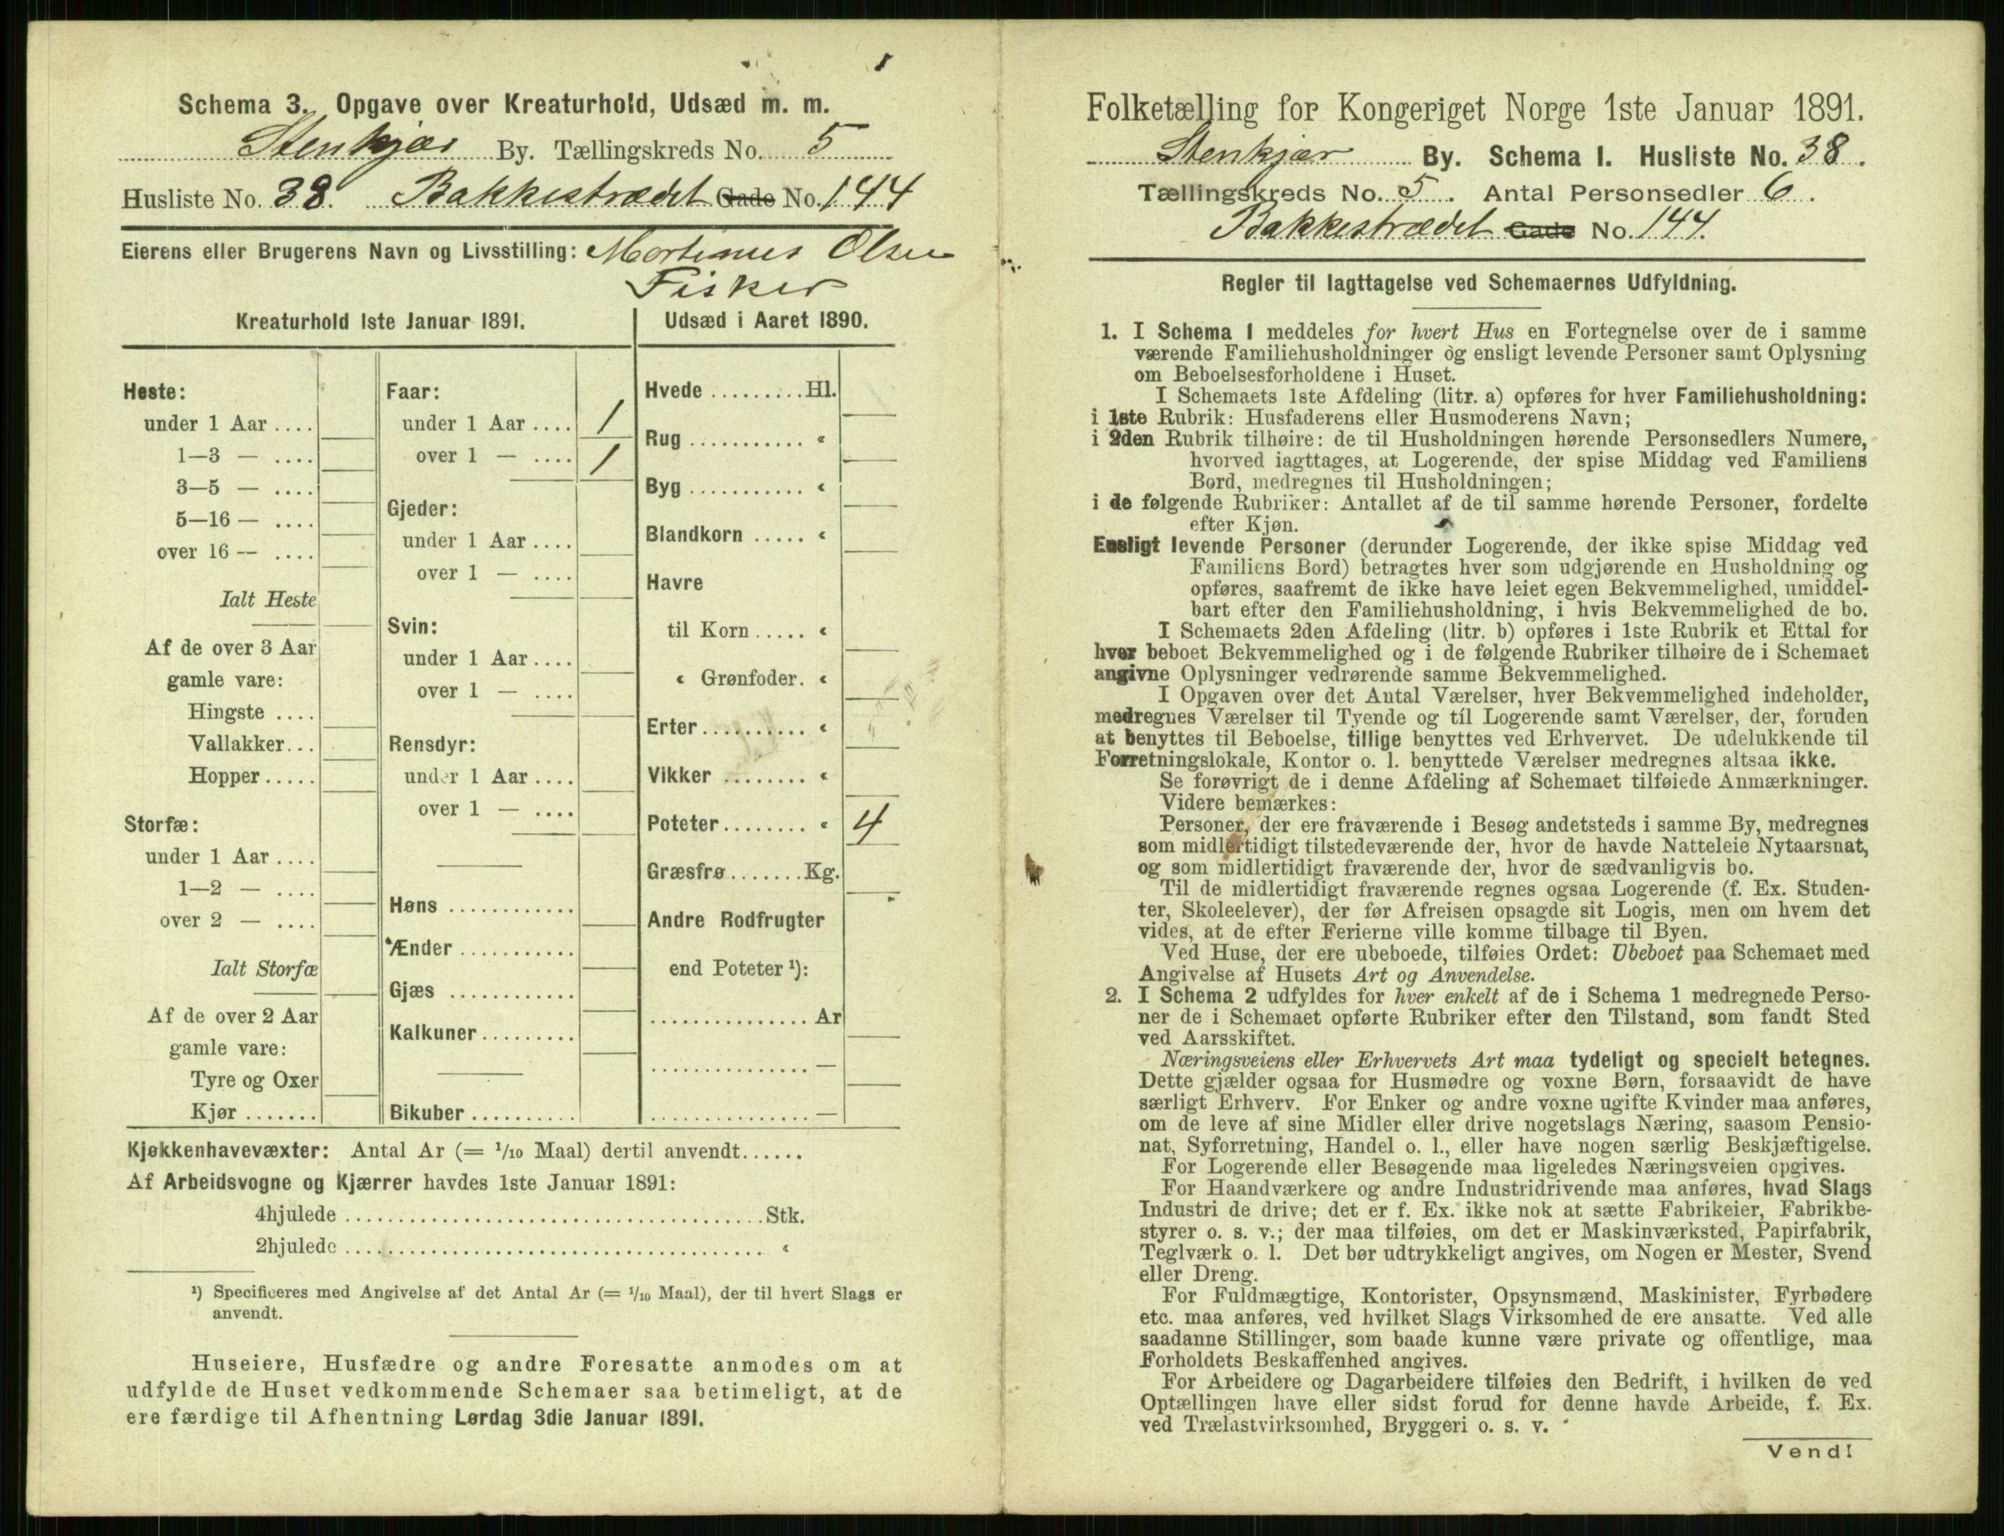 Schema 3. Opgave over Kreaturhold, Udsæd m. m.
Stenkjær By. Tællingskreds No. 5
Husliste No. 38. Bakkestrædet Gade No. 144
Eierens eller Brugerens Navn og Livsstilling: Mortinus Olsen
Fisker
Kreaturhold 1ste Januar 1891.
Heste:
under 1 Aar ....
1—3 — ....
3—5 — ....
5—16 — ....
over 16 — ....
Ialt Heste
Af de over 3 Aar
gamle vare:
Hingste ....
Vallakker...
Hopper.....
Storfæ:
under 1 Aar ....
1—2 — ....
over 2 — ....
Ialt Storfæ
Af de over 2 Aar
gamle vare:
Tyre og Oxer
Kjør .......
Faar:
under 1 Aar .... 1
over 1 — .... 1
Gjeder:
under 1 Aar ....
over 1 — ....
Svin:
under 1 Aar ....
over 1 — ....
Rensdyr:
under 1 Aar ....
over 1 — ....
Høns ............
Ænder ...........
Gjæs ............
Kalkuner.........
Bikuber ..........
Udsæd i Aaret 1890.
Hvede .........Hl.
Rug ........... «
Byg ........... «
Blandkorn ..... «
Havre
til Korn ..... «
« Grønfoder. «
Erter.......... «
Vikker ........ «
Poteter........ « 4
Græsfrø.......Kg.
Andre Rodfrugter
end Poteter ¹):
............... Ar
............... —
............... —
Kjøkkenhavevæxter: Antal Ar (= 1/10 Maal) dertil anvendt......
Af Arbeidsvogne og Kjærrer havdes 1ste Januar 1891:
4hjulede ........................................Stk.
2hjulede ........................................ «
¹) Specificeres med Angivelse af det Antal Ar (= 1/10 Maal), der til hvert Slags er
anvendt.
Huseiere, Husfædre og andre Foresatte anmodes om at
udfylde de Huset vedkommende Schemaer saa betimeligt, at de
ere færdige til Afhentning Lørdag 3die Januar 1891.
Folketælling for Kongeriget Norge 1ste Januar 1891.
Stenkjær By. Schema I. Husliste No. 38.
Tællingskreds No. 5. Antal Personsedler 6.
Bakkestrædet Gade No. 144.
Regler til Iagttagelse ved Schemaernes Udfyldning.
1. I Schema 1 meddeles for hvert Hus en Fortegnelse over de i samme
værende Familiehusholdninger og ensligt levende Personer samt Oplysning
om Beboelsesforholdene i Huset.
I Schemaets 1ste Afdeling (litr. a) opføres for hver Familiehusholdning:
i 1ste Rubrik: Husfaderens eller Husmoderens Navn;
i 2den Rubrik tilhøire: de til Husholdningen hørende Personsedlers Numere,
hvorved iagttages, at Logerende, der spise Middag ved Familiens
Bord, medregnes til Husholdningen;
i de følgende Rubriker: Antallet af de til samme hørende Personer, fordelte
efter Kjøn.
Ensligt levende Personer (derunder Logerende, der ikke spise Middag ved
Familiens Bord) betragtes hver som udgjørende en Husholdning og
opføres, saafremt de ikke have leiet egen Bekvemmelighed, umiddel-
bart efter den Familiehusholdning, i hvis Bekvemmelighed de bo.
I Schemaets 2den Afdeling (litr. b) opføres i 1ste Rubrik et Ettal for
hver beboet Bekvemmelighed og i de følgende Rubriker tilhøire de i Schemaet
angivne Oplysninger vedrørende samme Bekvemmelighed.
I Opgaven over det Antal Værelser, hver Bekvemmelighed indeholder,
medregnes Værelser til Tyende og til Logerende samt Værelser, der, foruden
at benyttes til Beboelse, tillige benyttes ved Erhvervet. De udelukkende til
Forretningslokale, Kontor o. l. benyttede Værelser medregnes altsaa ikke.
Se forøvrigt de i denne Afdeling af Schemaet tilføiede Anmærkninger.
Videre bemærkes:
Personer, der ere fraværende i Besøg andetsteds i samme By, medregnes
som midlertidigt tilstedeværende der, hvor de havde Natteleie Nytaarsnat,
og som midlertidigt fraværende der, hvor de sædvanligvis bo.
Til de midlertidigt fraværende regnes ogsaa Logerende (f. Ex. Studen-
ter, Skoleelever), der før Afreisen opsagde sit Logis, men om hvem det
vides, at de efter Ferierne ville komme tilbage til Byen.
Ved Huse, der ere ubeboede, tilføies Ordet: Ubeboet paa Schemaet med
Angivelse af Husets Art og Anvendelse.
2. I Schema 2 udfyldes for hver enkelt af de i Schema 1 medregnede Perso-
ner de i Schemaet opførte Rubriker efter den Tilstand, som fandt Sted
ved Aarsskiftet.
Næringsveiens eller Erhvervets Art maa tydeligt og specielt betegnes.
Dette gjælder ogsaa for Husmødre og voxne Børn, forsaavidt de have
særligt Erhverv. For Enker og andre voxne ugifte Kvinder maa anføres,
om de leve af sine Midler eller drive nogetslags Næring, saasom Pensio-
nat, Syforretning, Handel o. l., eller have nogen særlig Beskjæftigelse.
For Logerende eller Besøgende maa ligeledes Næringsveien opgives.
For Haandværkere og andre Industridrivende maa anføres, hvad Slags
Industri de drive; det er f. Ex. ikke nok at sætte Fabrikeier, Fabrikbe-
styrer o. s. v.; der maa tilføies, om det er Maskinværksted, Papirfabrik,
Teglværk o. l. Det bør udtrykkeligt angives, om Nogen er Mester, Svend
eller Dreng.
For Fuldmægtige, Kontorister, Opsynsmænd, Maskinister, Fyrbødere
etc. maa anføres, ved hvilket Slags Virksomhed de ere ansatte. Ved alle
saadanne Stillinger, som baade kunne være private og offentlige, maa
Forholdets Beskaffenhed angives.
For Arbeidere og Dagarbeidere tilføies den Bedrift, i hvilken de ved
Optællingen have eller sidst forud for denne havde Arbeide, f. Ex.
ved Trælastvirksomhed, Bryggeri o. s. v.
Vend!